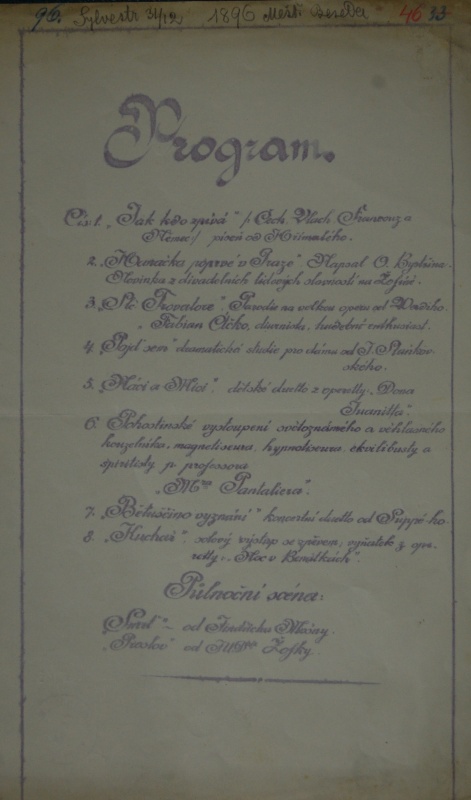 96. Sylvestr 31/12 1896 Měšť. beseda 46 33
Program.
Čís. 1. „Jak kdo zpívá“ /: Čech, Vlach, Francouz a
Němec :/ píseň od
2. „Hanačka poprve v Praze“. Napsal O.
Novinka z divadelních lidových slavností na Žofíně.
3. „Il Trovatore“. Parodie na velkou operu od Verdiho.
„Fabian Očko, duvnický, hudební enthusiast.
4. „Pojď sem“ dramatická studie pro dámu od J. Staňkov-
ského.
5. „Náci a Mici“, dětské duetto z operetty: „Dona
Juanitta“.
6. Pohostinské vystoupení světoznámého a věhlasného
kouzelníka, magnetiseura, hypnotiseura, ekvilibristy a
spiritisty p. professora
„Pantaliera“.
7. „Bětuščino vyznání“ koncertní duetto od Suppé-ho.
8. „Kuchař“, solový výstup se zpěvem; vyňatek z ope-
retty: „Noc v Benátkách“.
Půlnoční scéna:
„Smrt“ – od Jindřicha
„Proslov“ od MDra Žofky.